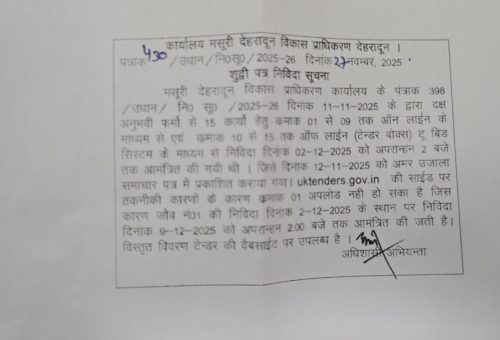 कार्यालय मसूरी देहरादून विकास प्राधिकरण देहरादून ।
पत्रांक 430 / उधान / नि0सू0 / 2025-26 दिनांक 27 नवम्बर, 2025
शुद्वी पत्र निविदा सूचना
मसूरी देहरादून विकास प्राधिकरण कार्यालय के पंत्राक 398
/ उधान / नि0 सू0 / 2025-26 दिनांक 11-11-2025 के द्वारा दक्ष
अनुभवी फर्मो से 15 कार्यो हेतु कमाक 01 से 09 तक ऑन लाईन के
माध्यम से एवं कमाक 10 से 15 तक ऑफ लाईन (टेन्डर बोक्स) टू बिड
सिस्टम के माध्यम से निविदा दिनांक 02-12-2025 को अपरान्हन 2 बजे
तक आमंत्रित की गयी थी । जिसे दिनांक 12-11-2025 को अमर उजाला
समाचार पत्र में प्रकाशित कराया गया। uktenders.gov.in की साईड पर
तकनीकी कारणों के कारण कमाक 01 अपलोड नही हो सका है जिस
कारण जोब नं01 की निविदा दिनांक 2-12-2025 के स्थान पर निविदा
दिनांक 9-12-2025 को अपरान्हन 2.00 बजे तक आमंत्रित की जाती है।
विस्तृत विवरण टेन्डर की वैबसाईट पर उपलब्ध है ।
अधिशासी अभियन्ता